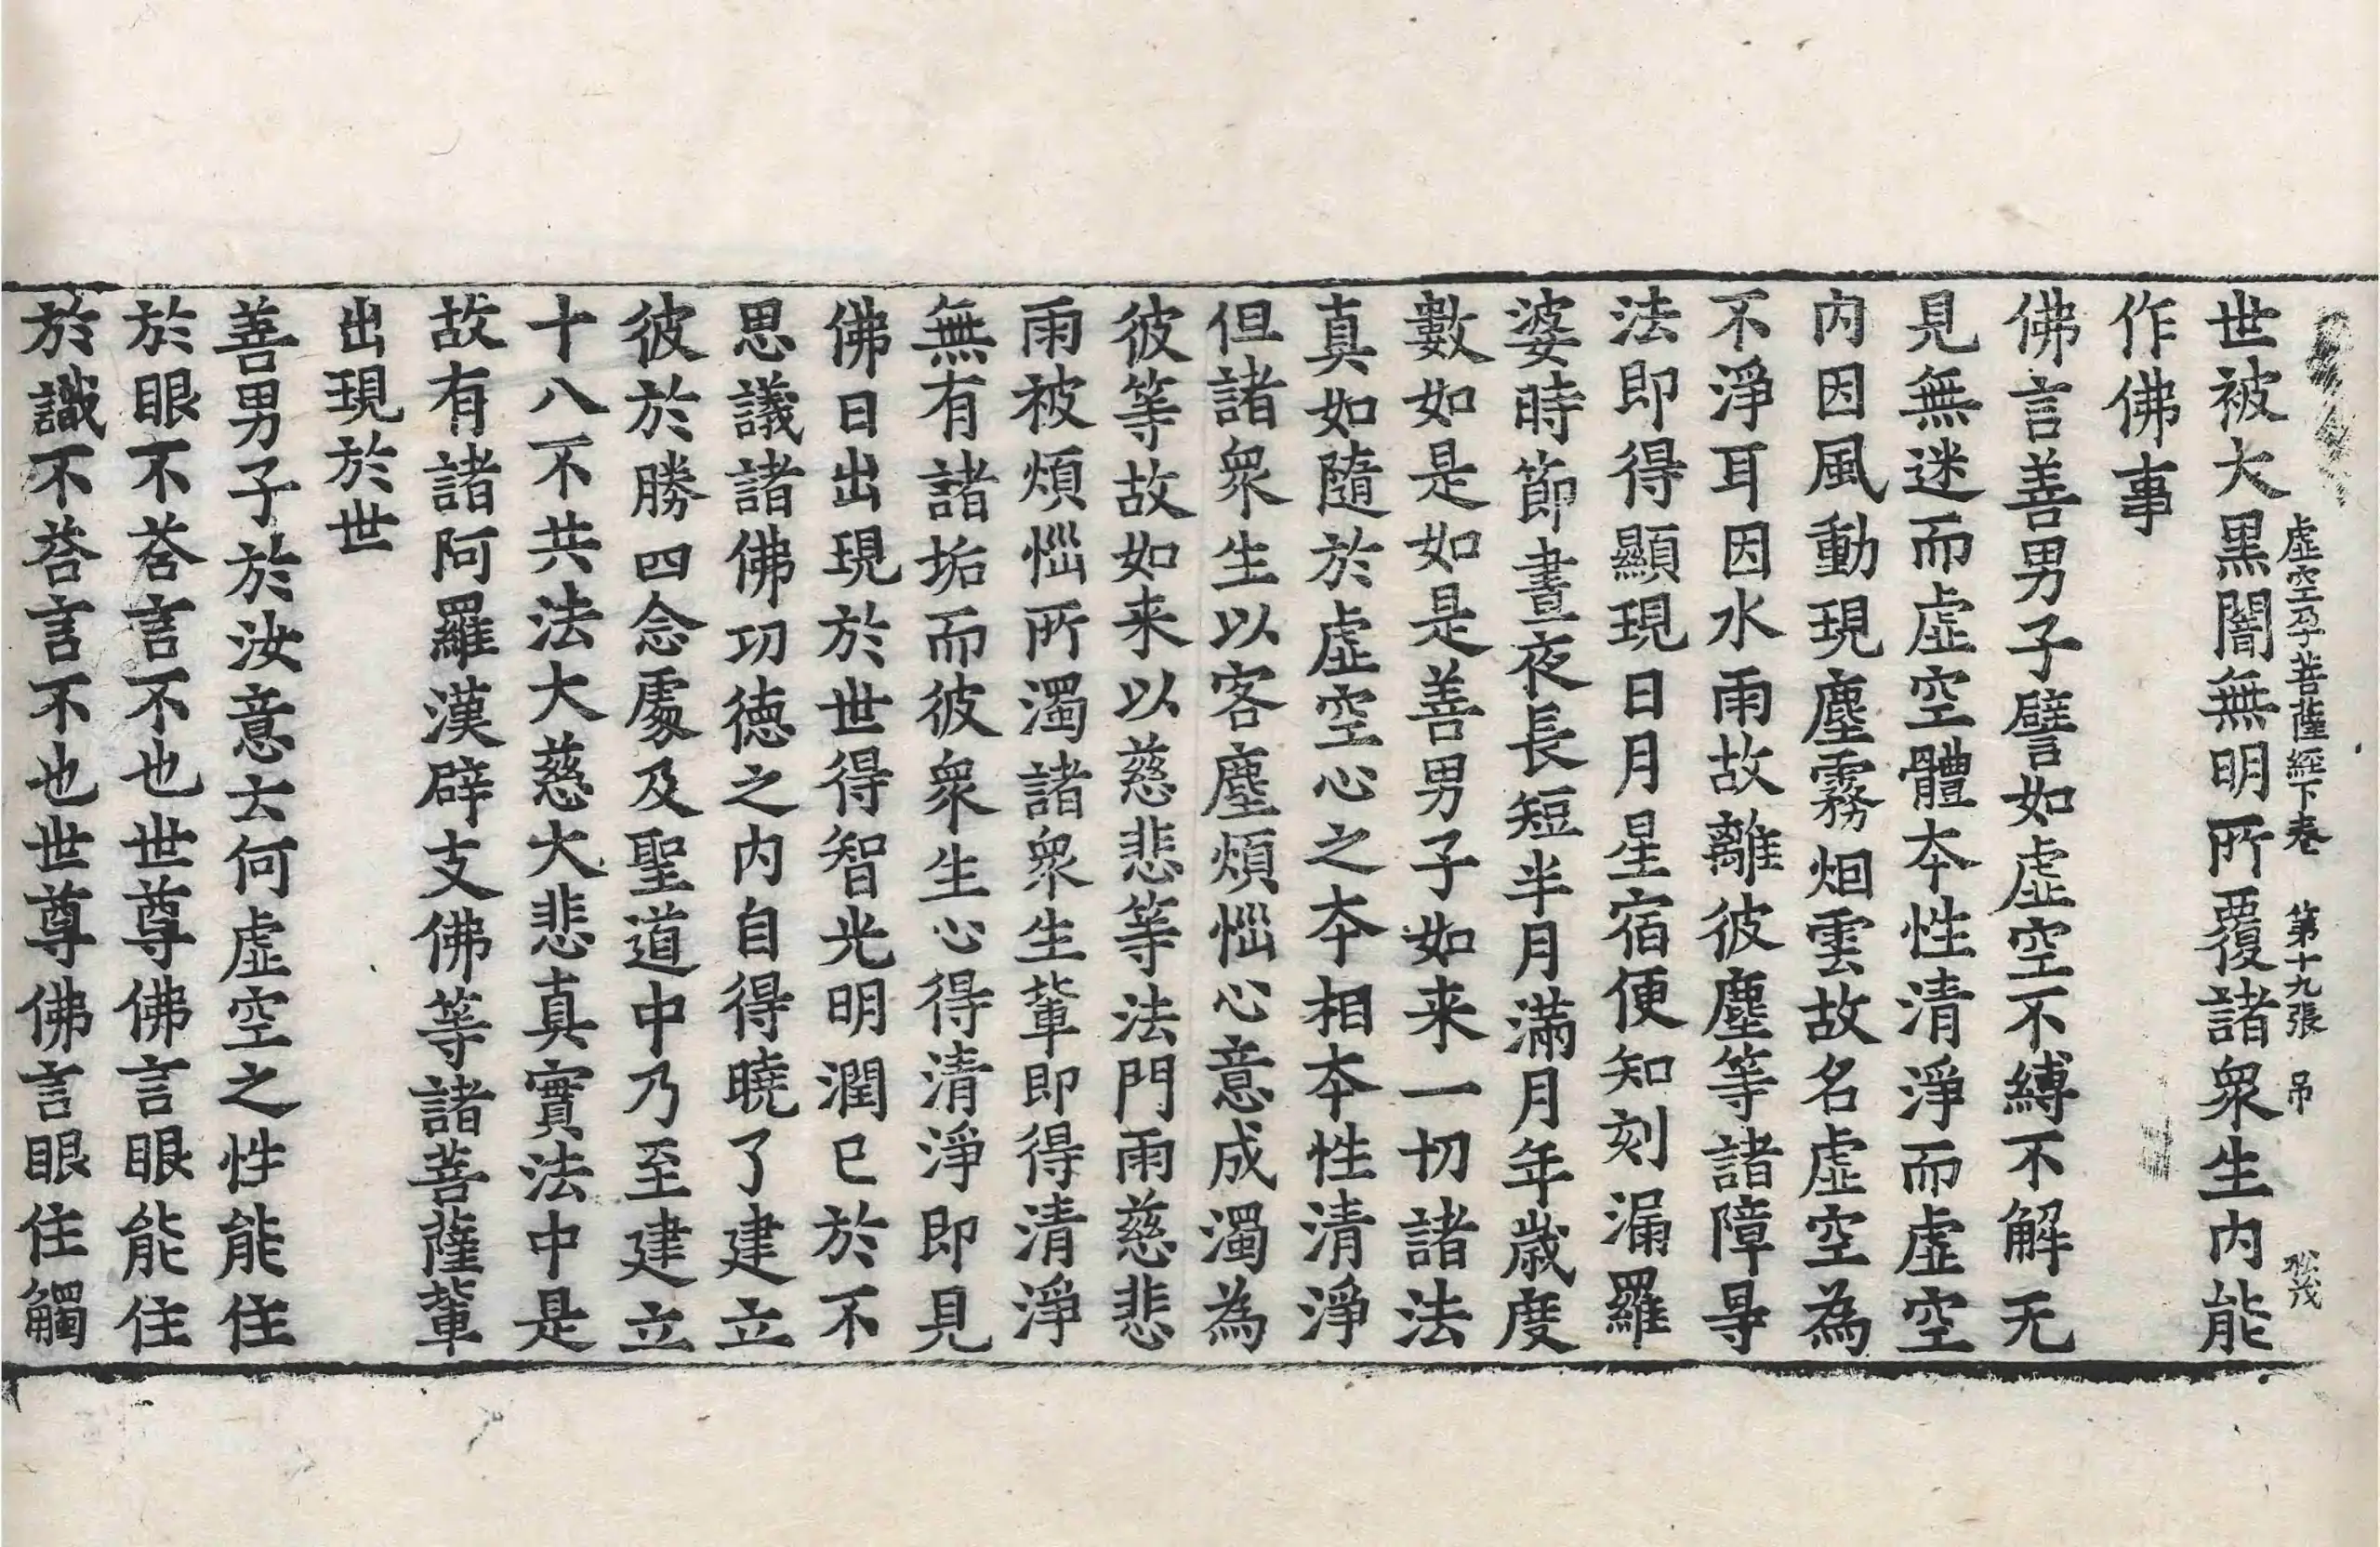 虛空孕菩薩經下卷　第十九張　吊　松茂
世被大黑闇無明所覆諸衆生内能
作佛事
佛言善男子譬如虛空不縛不解无
見無迷而虛空體夲性清淨而虛空
内因風動現塵霧烟雲故名虛空為
不淨耳因水雨故離彼塵等諸障㝵
法即得顯現日月星宿便知刻漏羅
婆時節晝夜長短半月滿月年歲度
數如是如是善男子如来一切諸法
真如隨於虛空心之夲相夲性清淨
但諸衆生以客塵煩惱心意成濁為
彼等故如来以慈悲等法門雨慈悲
雨被煩惱所濁諸衆生輩即得清淨
無有諸垢而彼衆生心得清淨即見
佛日出現於世得智光明潤已於不
思議諸佛功德之内自得曉了建立
彼於勝四念處及聖道中乃至建立
十八不共法大慈大悲真實法中是
故有諸阿羅漢辟支佛等諸菩薩輩
出現於世
善男子於汝意云何虛空之性能住
於眼不荅言不也世尊佛言眼能住
於識不荅言不也世尊佛言眼住觸